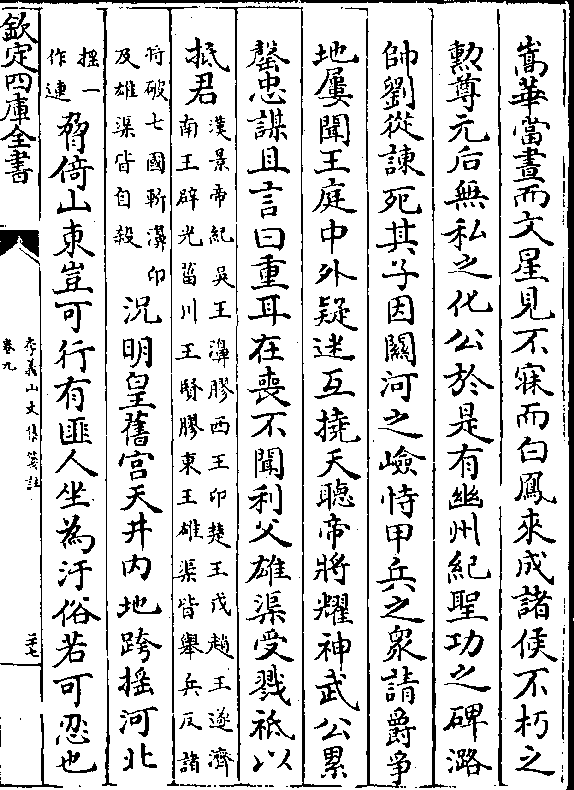 嵩華當晝而文星見不寐而白鳳來成諸侯不朽之
勲尊元后無私之化公於是有幽州紀聖功之碑潞
帥劉從諫死其子因關河之嶮恃甲兵之衆請爵爭
地屢聞王庭中外疑迷互撓天聽帝將耀神武公累
罄忠謀且言曰重耳在喪不聞利父雄渠受戮祗以
抵君
漢景帝紀吳王濞膠西王卬楚王戊趙王遂濟
南王辟光菑川王賢膠東王雄渠皆舉兵反諸
将破七國斬濞卬
及雄渠皆自殺
況明皇舊宮天井内地跨揺河北
揺一
作連
脅倚山東豈可行有匪人坐為汙俗若可忍也
欽定四庫全書
李義山文集箋註
卷九